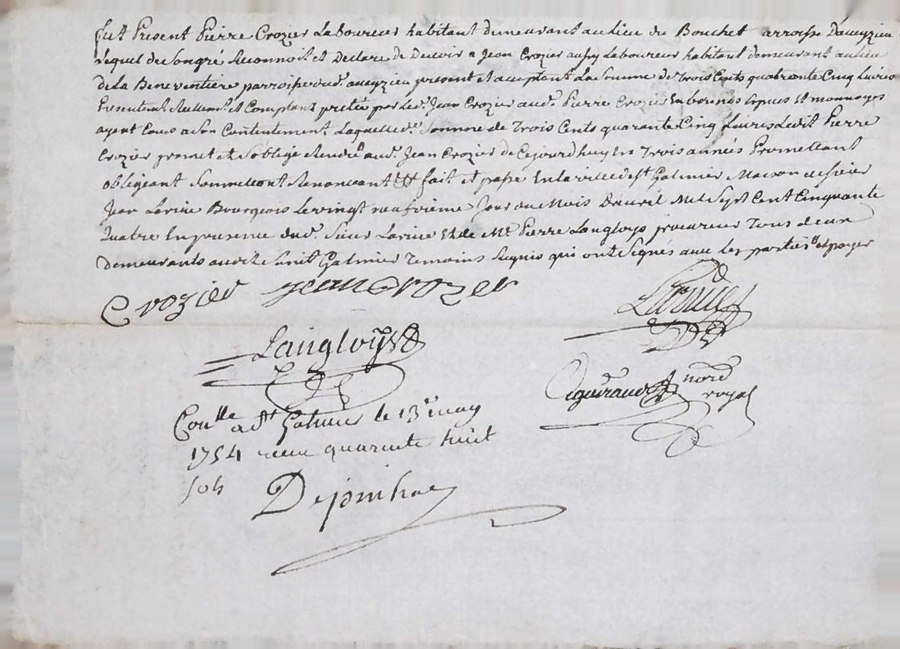 fut Present Pierre Crozier Laboureur habitant demeurant au lieu du Bouchet
Lequel de son gré Reconnoit et Declare de Devoir a Jean Crozier aussy Laboureur habitant demeurant au lieu
de la present et acceptant La somme de Trois Cents quarante Cinq Livres
et Comptant pretés par led. Jean Crozier aud. Pierre Crozier En bonnes Especes et monnoyes
ayent Cours a son Contentement Laquelle d. Somme de Trois Cents quarante Cinq Livres Ledit Pierre
Crozier promet et s'oblige Rendre aud. Jean Crozier de Cejourdhuy En Trois années Promettant
obligeant Soumettant Renonceant fait et passé En la ville de St Galmier Maison de sieur
Jean Bourgeois Le vingt neufvième Jour du Mois D'avril Mil Sept Cent Cinquante
Quatre En presence dud. Sieur et de Me Pierre Langloys procureur Tous deux
demeurants aud. Saint Galmier Temoins Requis qui ont Signés avec les parties
Crozier Jean Crozer
Langloys
royal
Conlle a St Galmier le 13e may
1754 receu quarente huit
sols